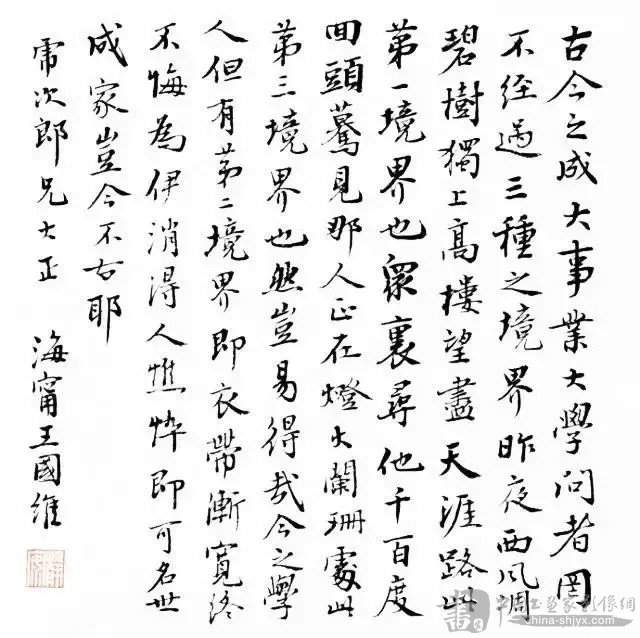 古今之成大事業大學問者罔
不經過三種之境界昨夜西風凋
碧樹獨上高樓望盡天涯路此
第一境界也眾裏尋他千百度
回頭驀見那人正在燈火闌珊處此
第三境界也然豈易得哉今之學
人但有第二境界即衣帶漸寬終
不悔為伊消得人憔悴即可名世
成家豈今不古耶
雷次郎兄大正
海甯王國維
中國書畫家影像網
china-shjyx.com